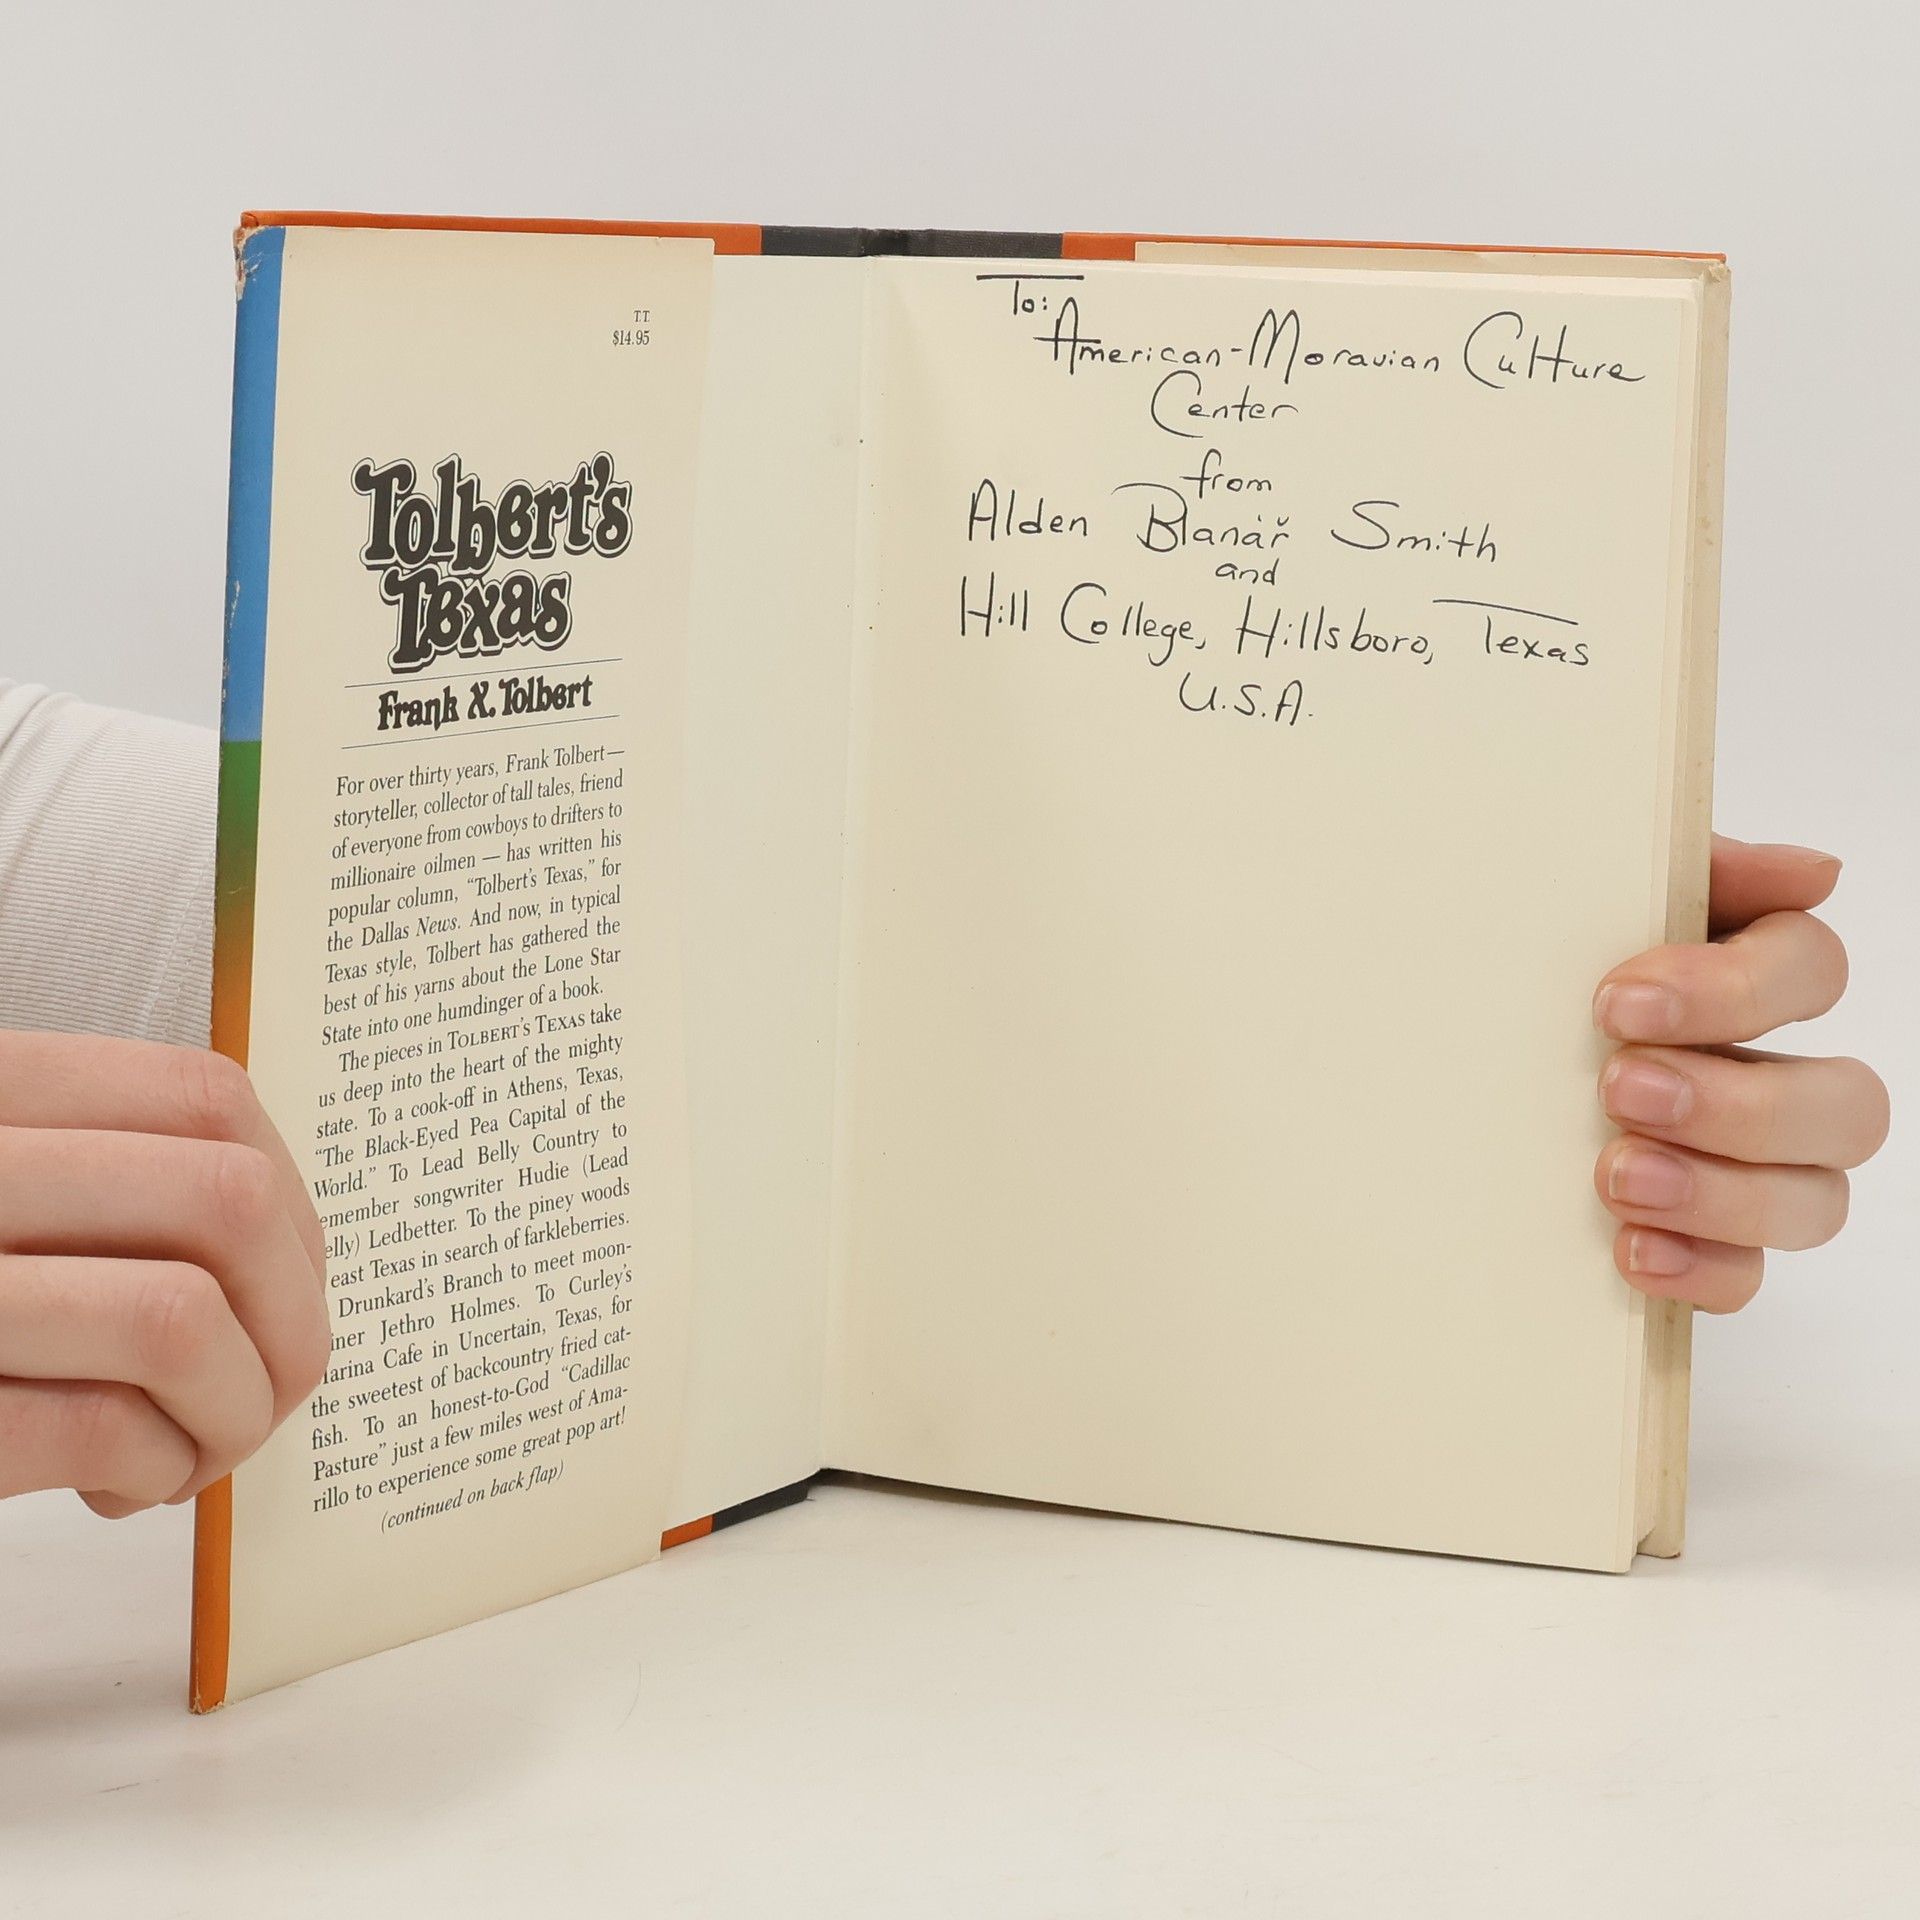 T.T.
$14.95
Tolbert's
Texas
Frank X. Tolbert
For over thirty years, Frank Tolbert—
storyteller, collector of tall tales, friend
of everyone from cowboys to drifters to
millionaire oilmen — has written his
popular column, “Tolbert's Texas,” for
the Dallas News. And now, in typical
Texas style, Tolbert has gathered the
best of his yarns about the Lone Star
State into one humdinger of a book.
The pieces in TOLBERT'S TEXAS take
us deep into the heart of the mighty
state. To a cook-off in Athens, Texas,
“The Black-Eyed Pea Capital of the
World.” To Lead Belly Country to
emember songwriter Hudie (Lead
elly) Ledbetter. To the piney woods
east Texas in search of farkleberries.
Drunkard's Branch to meet moon-
iner Jethro Holmes. To Curley's
arina Cafe in Uncertain, Texas, for
the sweetest of backcountry fried cat-
fish. To an honest-to-God “Cadillac
Pasture” just a few miles west of Ama-
rillo to experience some great pop art!
(continued on back flap)
To:
American-Moravian Culture
Center
from
Alden Blanář Smith
and
Hill College, Hillsboro, Texas
U.S.A.